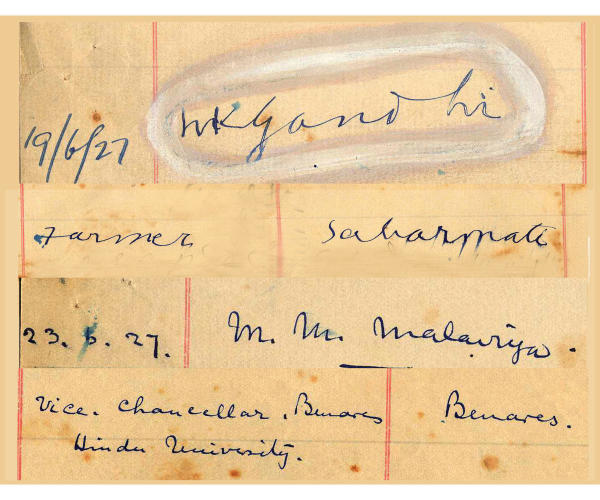 19/6/27 MKGandhi
Farmer Sabarmati
23. 6. 27. M. M. Malaviya.
Vice. Chancellor, Benares Benares.
Hindu University.